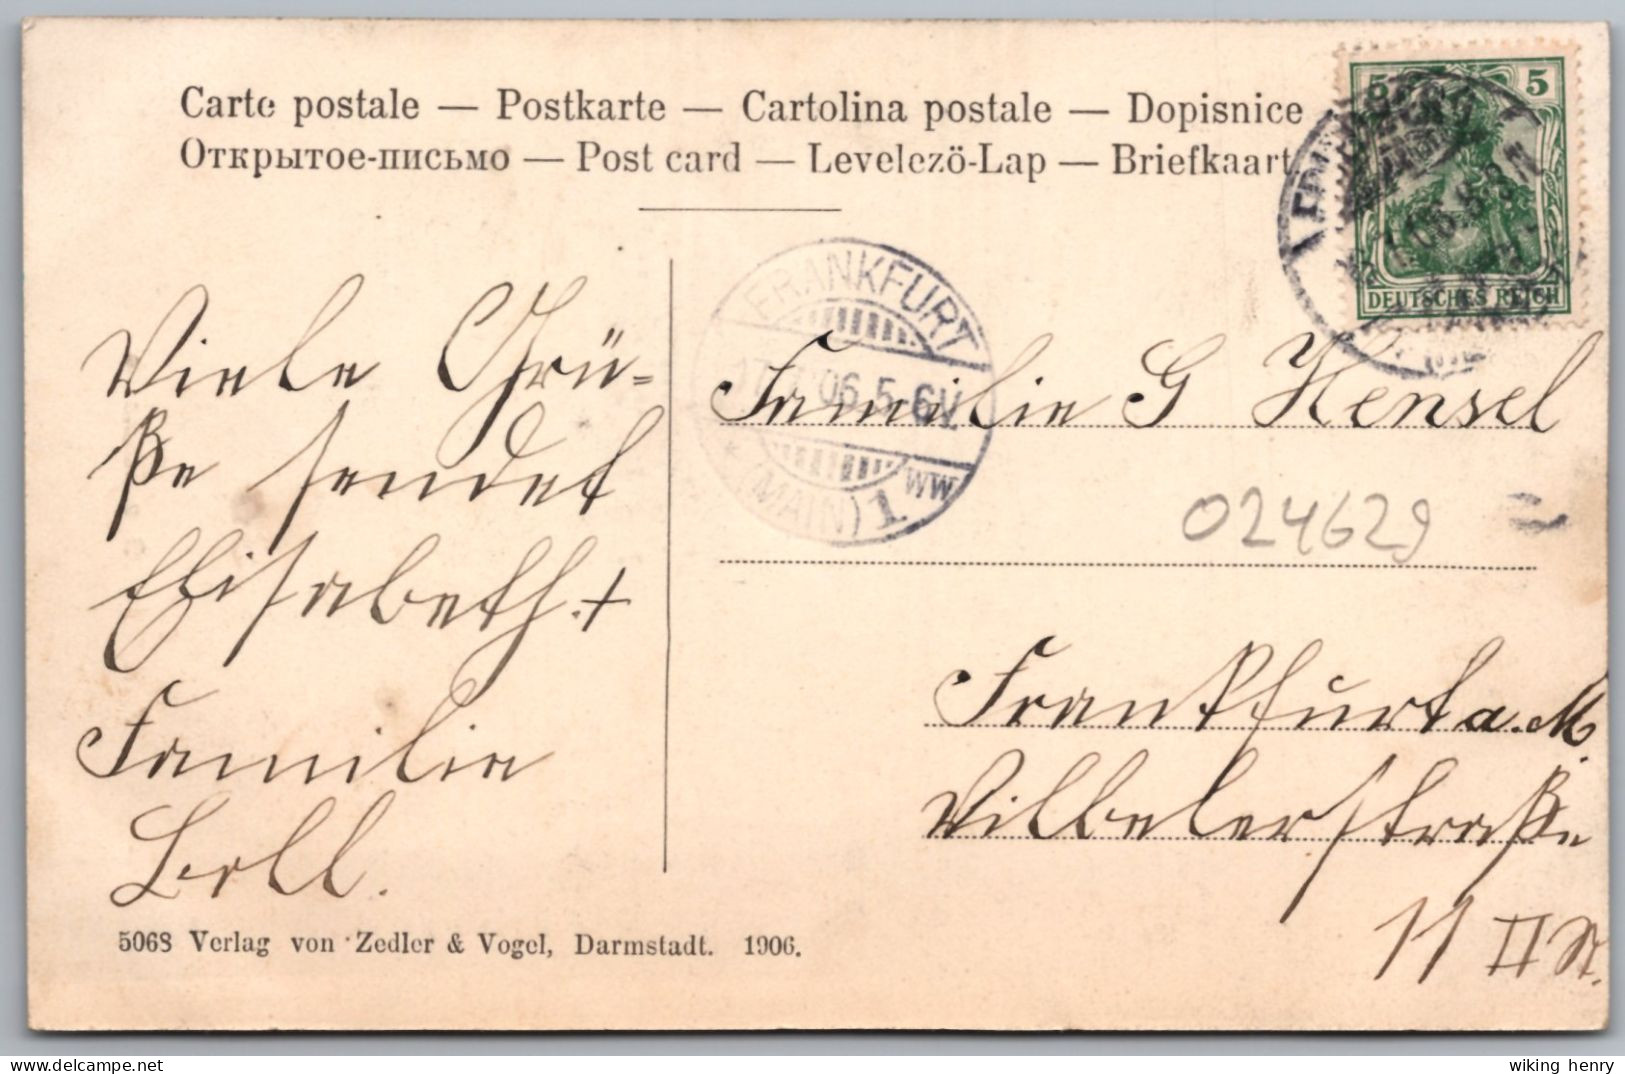 Carte postale — Postkarte — Cartolina postale — Dopisnice
Открытое-письмо — Post card — Levelező-Lap — Briefkaart
5 5
DEUTSCHES REICH
FRANKFURT
06.5-6V.
* (MAIN) 1 WW
Viele Grü=
ße sendet
Elisabeth. +
Familie
Familie G Hensel
024629
Frankfurt a. M.
Vilbelerstraße
11 II St.
5068 Verlag von Zedler & Vogel, Darmstadt. 1906.
wiking henry